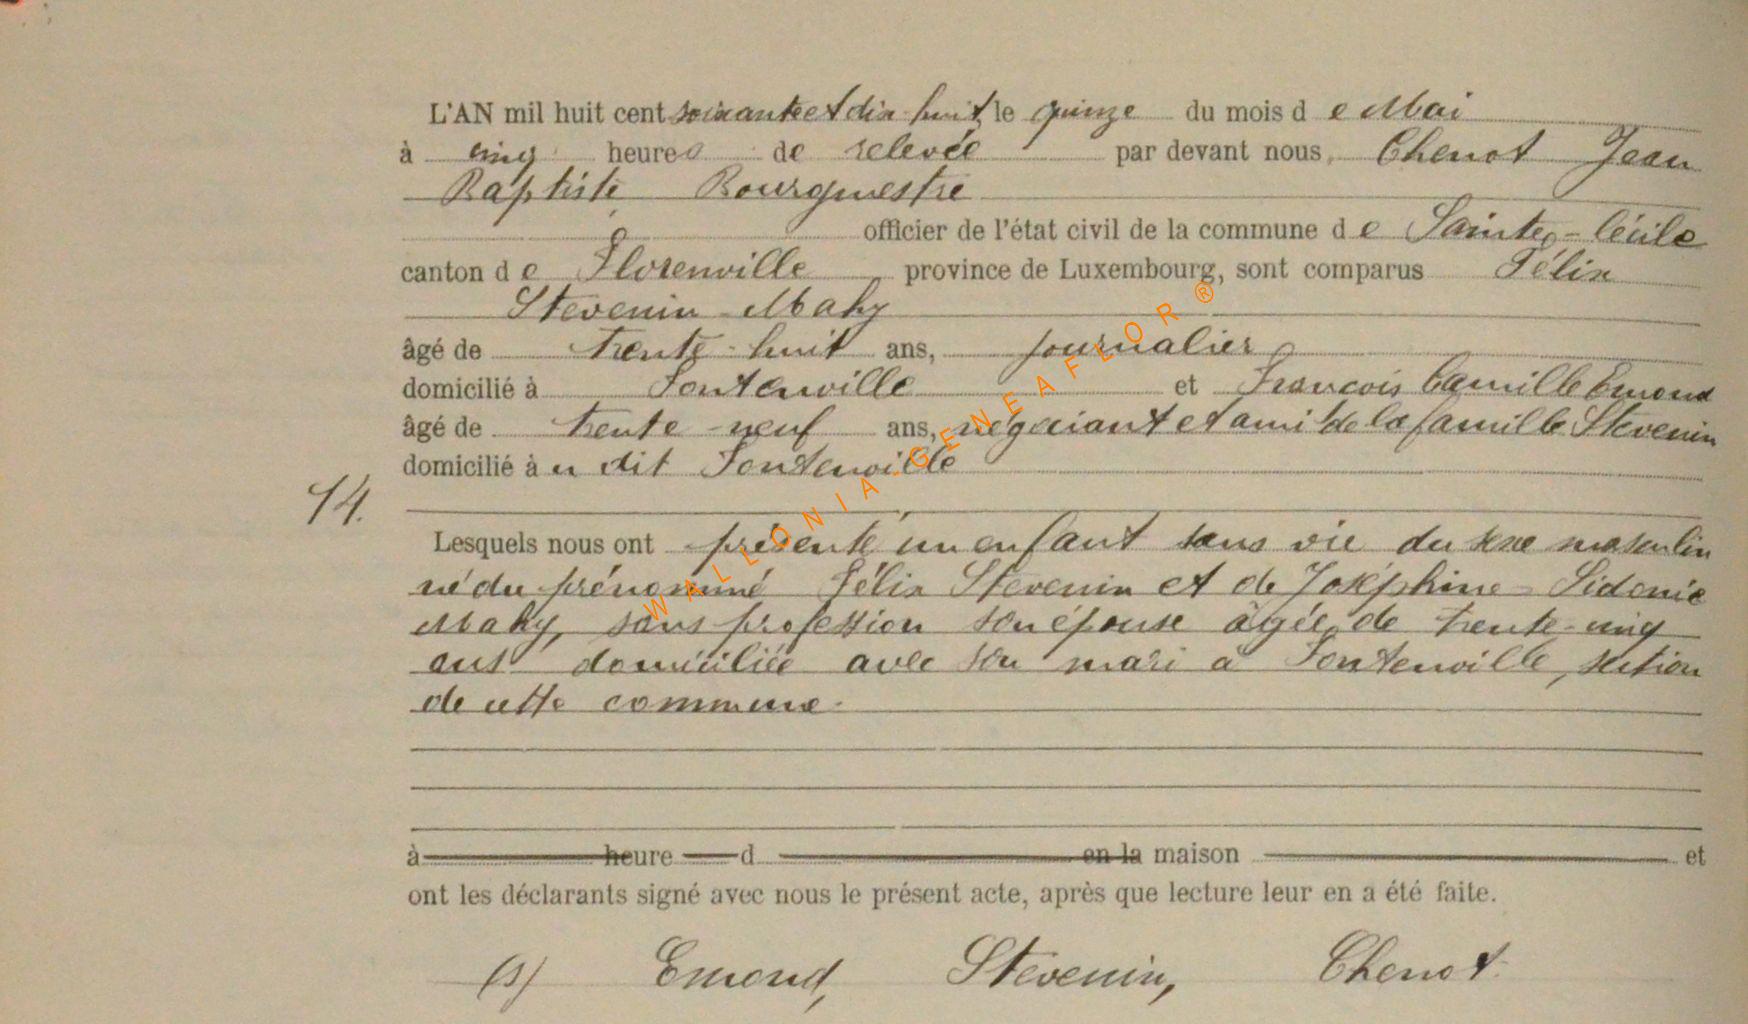 L'AN mil huit cent soixante et dix huit, le quinze du mois d e Mai
à cinq heures de relevée par devant nous, Chenot Jean
Baptiste Bourgmestre
officier de l'état civil de la commune d e Sainte-Cécile
canton d e Florenville province de Luxembourg, sont comparus Félix
Stevenin-Mahy
âgé de trente-huit ans, journalier
domicilié à Fontenoille et François Camille Emond
âgé de trente-neuf ans, négociant et ami de la famille Stevenin
domicilié à u dit Fontenoille
14.
Lesquels nous ont présenté un enfant sans vie du sexe masculin
né du prénommé Félix Stevenin et de Joséphine-Sidonie
Mahy, sans profession son épouse âgée de trente-cinq
ans domiciliée avec son mari à Fontenoille, section
de cette commune.
à heure d en la maison et
ont les déclarants signé avec nous le présent acte, après que lecture leur en a été faite.
(s) Emond, Stevenin, Chenot
WALLONIA-GENEAFLOR ®